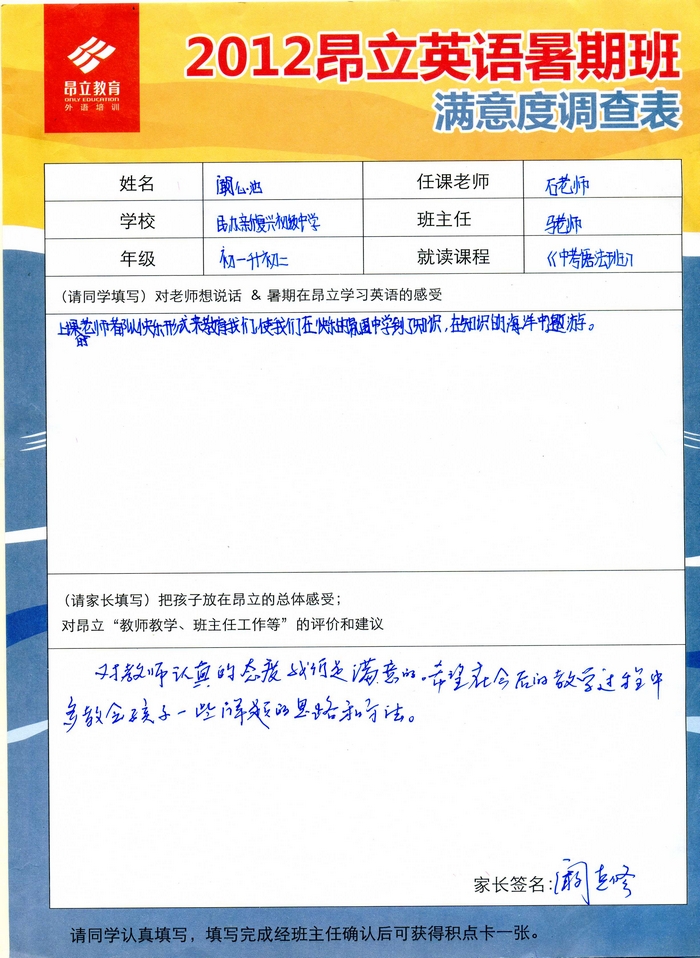 昂立教育
ONLY EDUCATION
外语培训
2012昂立英语暑期班
满意度调查表
姓名 任课老师 石老师
学校 民办新复兴初级中学 班主任 马老师
年级 初一升初二 就读课程 《中考语法班》
（请同学填写）对老师想说话 & 暑期在昂立学习英语的感受
上课时老师都以快乐形式来教育我们,使我们在快乐的氛围中学到了知识,在知识的海洋中遨游。
（请家长填写）把孩子放在昂立的总体感受；
对昂立“教师教学、班主任工作等”的评价和建议
对教师认真的态度我们是满意的。希望在今后的教学过程中
多教会孩子一些解题的思路和方法。
家长签名:
请同学认真填写，填写完成经班主任确认后可获得积点卡一张。